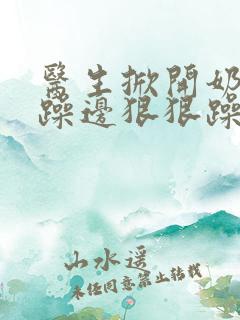 醫生掀開奶
躁邊狠狠躁
山水遥
未经同意禁止转载